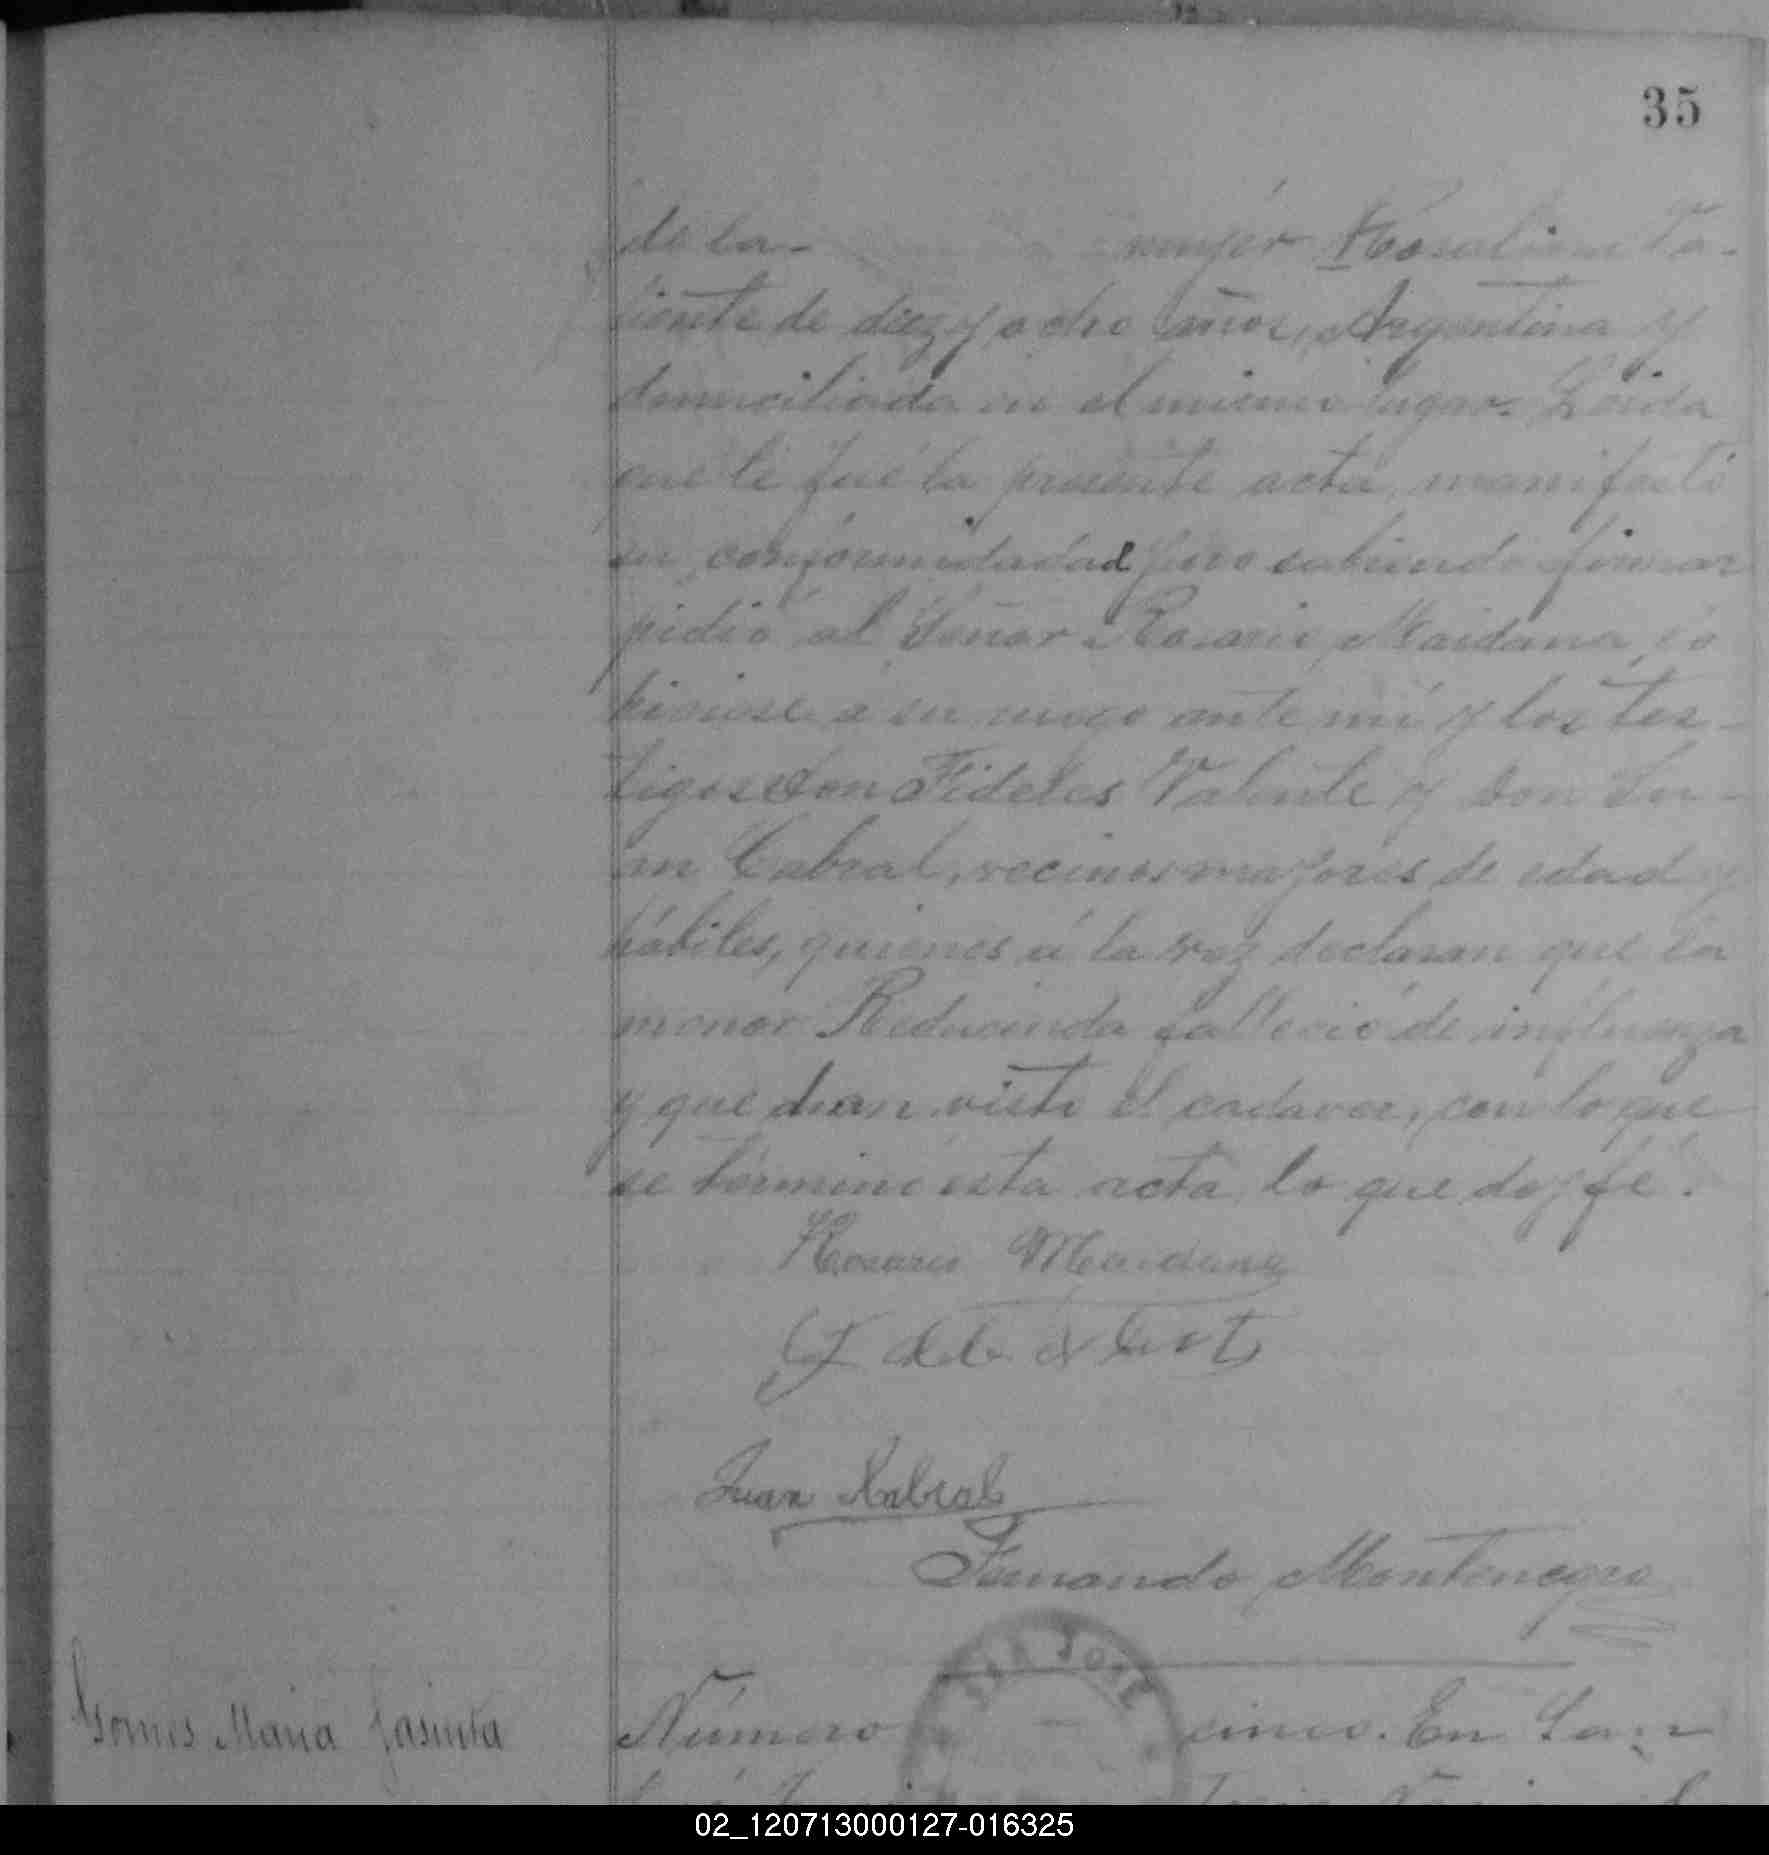 35
de la- mujer Rosalina Va-
liente de diez y ocho años, Argentina y
domiciliada en el mismo lugar. Leida
que le fué la presente acta, manifestó
su conformidadad y no sabiendo firmar
pidió al Señor Rosario Maidana lo
hiciese a su ruego ante mi y los tes-
tigos don Fideles Valente y don Ju-
an Cabral, vecinos mayores de edad y
hábiles, quienes á la vez declaran que la
menor Reducinda falleció de influenza
y que han visto el cadaver, con lo que
se terminó esta acta, lo que doy fé.
Rosario Maidana
Juan Kabral
Fernando Montenegro
SAN JOSE
Gomes Maria Jasinta
Número cinco. En San
02_120713000127-016325